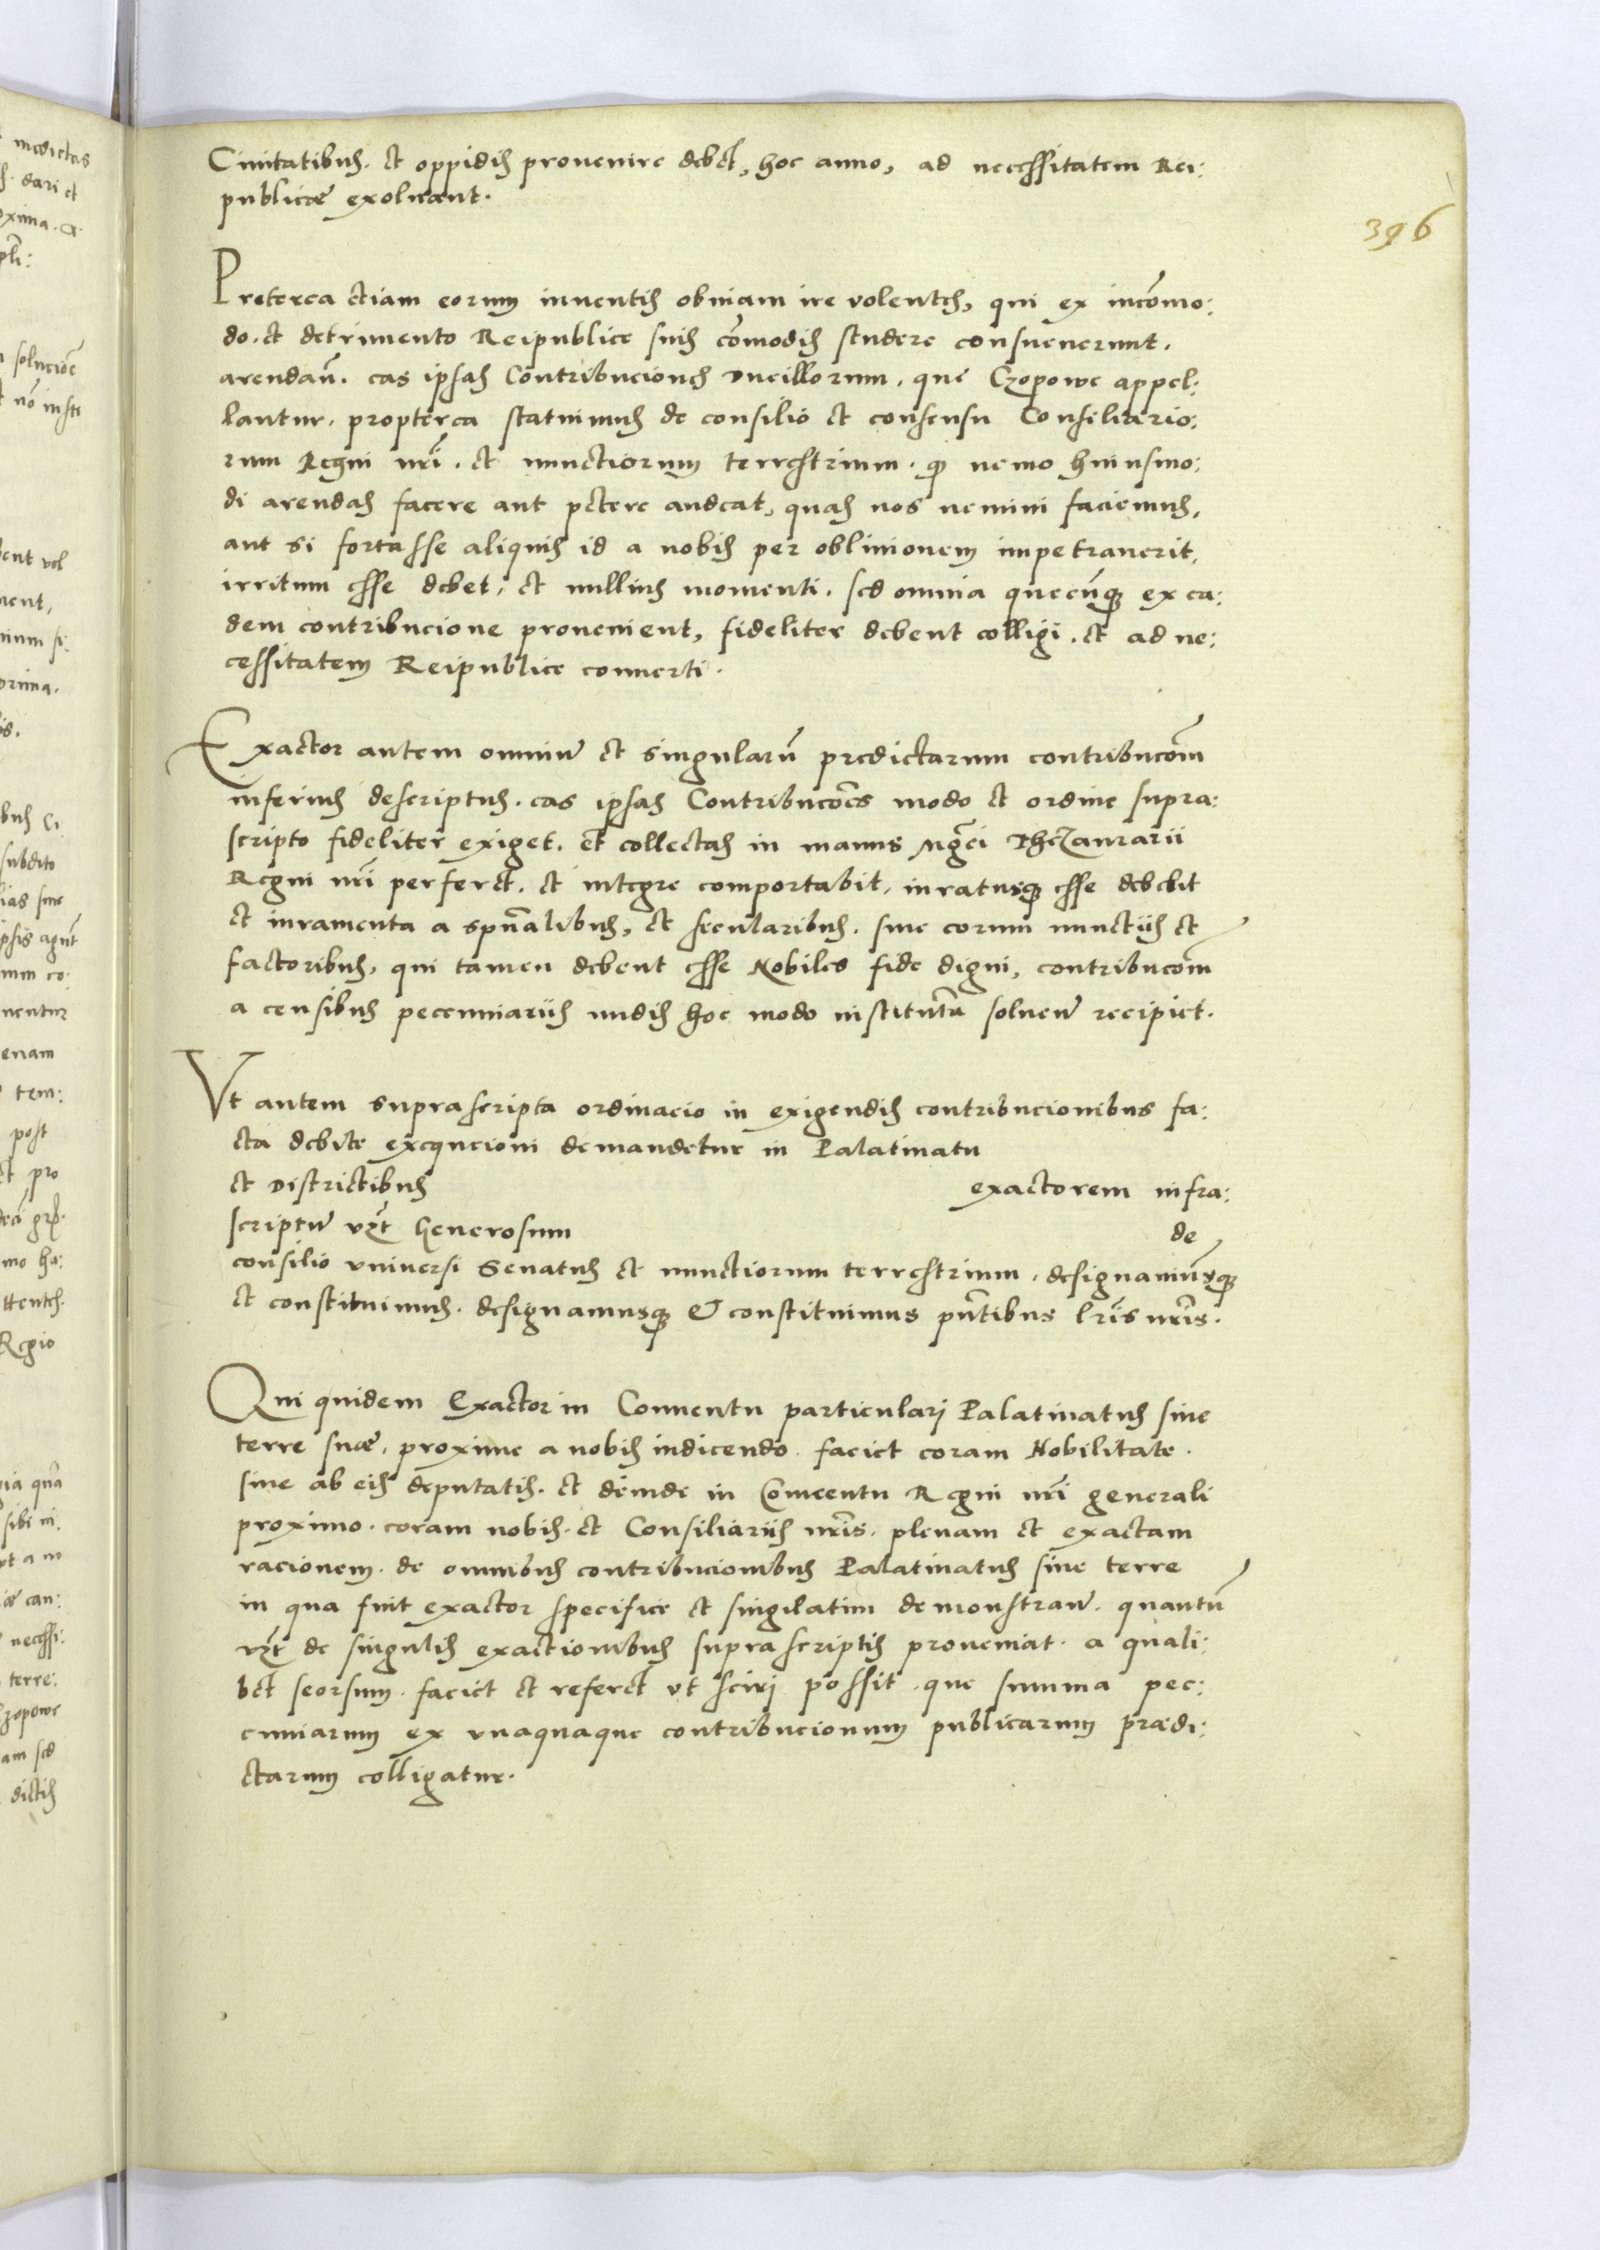 Ciuitatibus. et oppidis prouenire debet, hoc anno, ad necessitatem Rei:
publicæ exoluant.
396
Preterea etiam eorum inuentis obuiam ire volentes, qui ex incōmo:
do. et detrimento Reipublice suis cōmodis studere consueuerunt.
arendan̄. eas ipsas Contribuciones Ducillorum. que Czopowe appel:
lantur. propterea statuimus de consilio et consensu Consiliario:
rum Regni nr̄i. et nunctiorum terrestrium. qͦ nemo huiusmo:
di arendas facere aut petere audeat, quas nos nemini faciemus,
aut si fortasse aliquis id a nobis per obliuionem impetrauerit,
irritum esse debet, et nullius momenti. sed omnia quecūqꝫ ex ea:
dem contribucione prouenient, fideliter debent colligi. et ad ne:
cessitatem Reipublice conuerti.
Exactor autem omniū et singularū predictarum contribucōm
inferius descriptus. eas ipsas Contribucōes modo et ordine supra:
scripto fideliter exiget. et collectas in manus Mgc̄i Thezaurarii
Regni nr̄i perferet. et integre comportabit, iuratusqꝫ esse debebit
et iuramenta a spūalibus, et secularibus. siue eorum nunctiis et
factoribus, qui tamen debent esse Nobiles fide digni, contribucōm
a censibus pecuniariis nudis hoc modo institutā soluen̄ recipiet.
Vt autem suprascripta ordinacio in exigendis contribucionibus fa:
cta debite execucioni demandetur in Palatinatu
et Districtibus exactorem infra:
scriptū vꝫt Generosum de
consilio vniuersi Senatus et nunctiorum terrestrium, designauimusqꝫ
et constituimus. designamusqꝫ & constituimus pn̄tibus lr̄is nr̄is.
Qui quidem Exactor in Conuentu particulari Palatinatus siue
terre suæ, proxime a nobis indicendo. faciet coram Nobilitate.
siue ab eis deputatis. et deinde in Conuentu Regni nr̄i generali
proximo. coram nobis. et Consiliariis nr̄is. plenam et exactam
racionem. de omnibus contribucionibus Palatinatus siue terre
in qua fuit exactor specifice et singilatim demonstran̄. quantū
vꝫt de singulis exactionibus suprascriptis proueniat. a quali:
bet seorsum. faciet et referet vt sciri possit. que summa pec:
cuniarum ex vnaquaque contribucionum publicarum prædi:
ctarum colligatur.